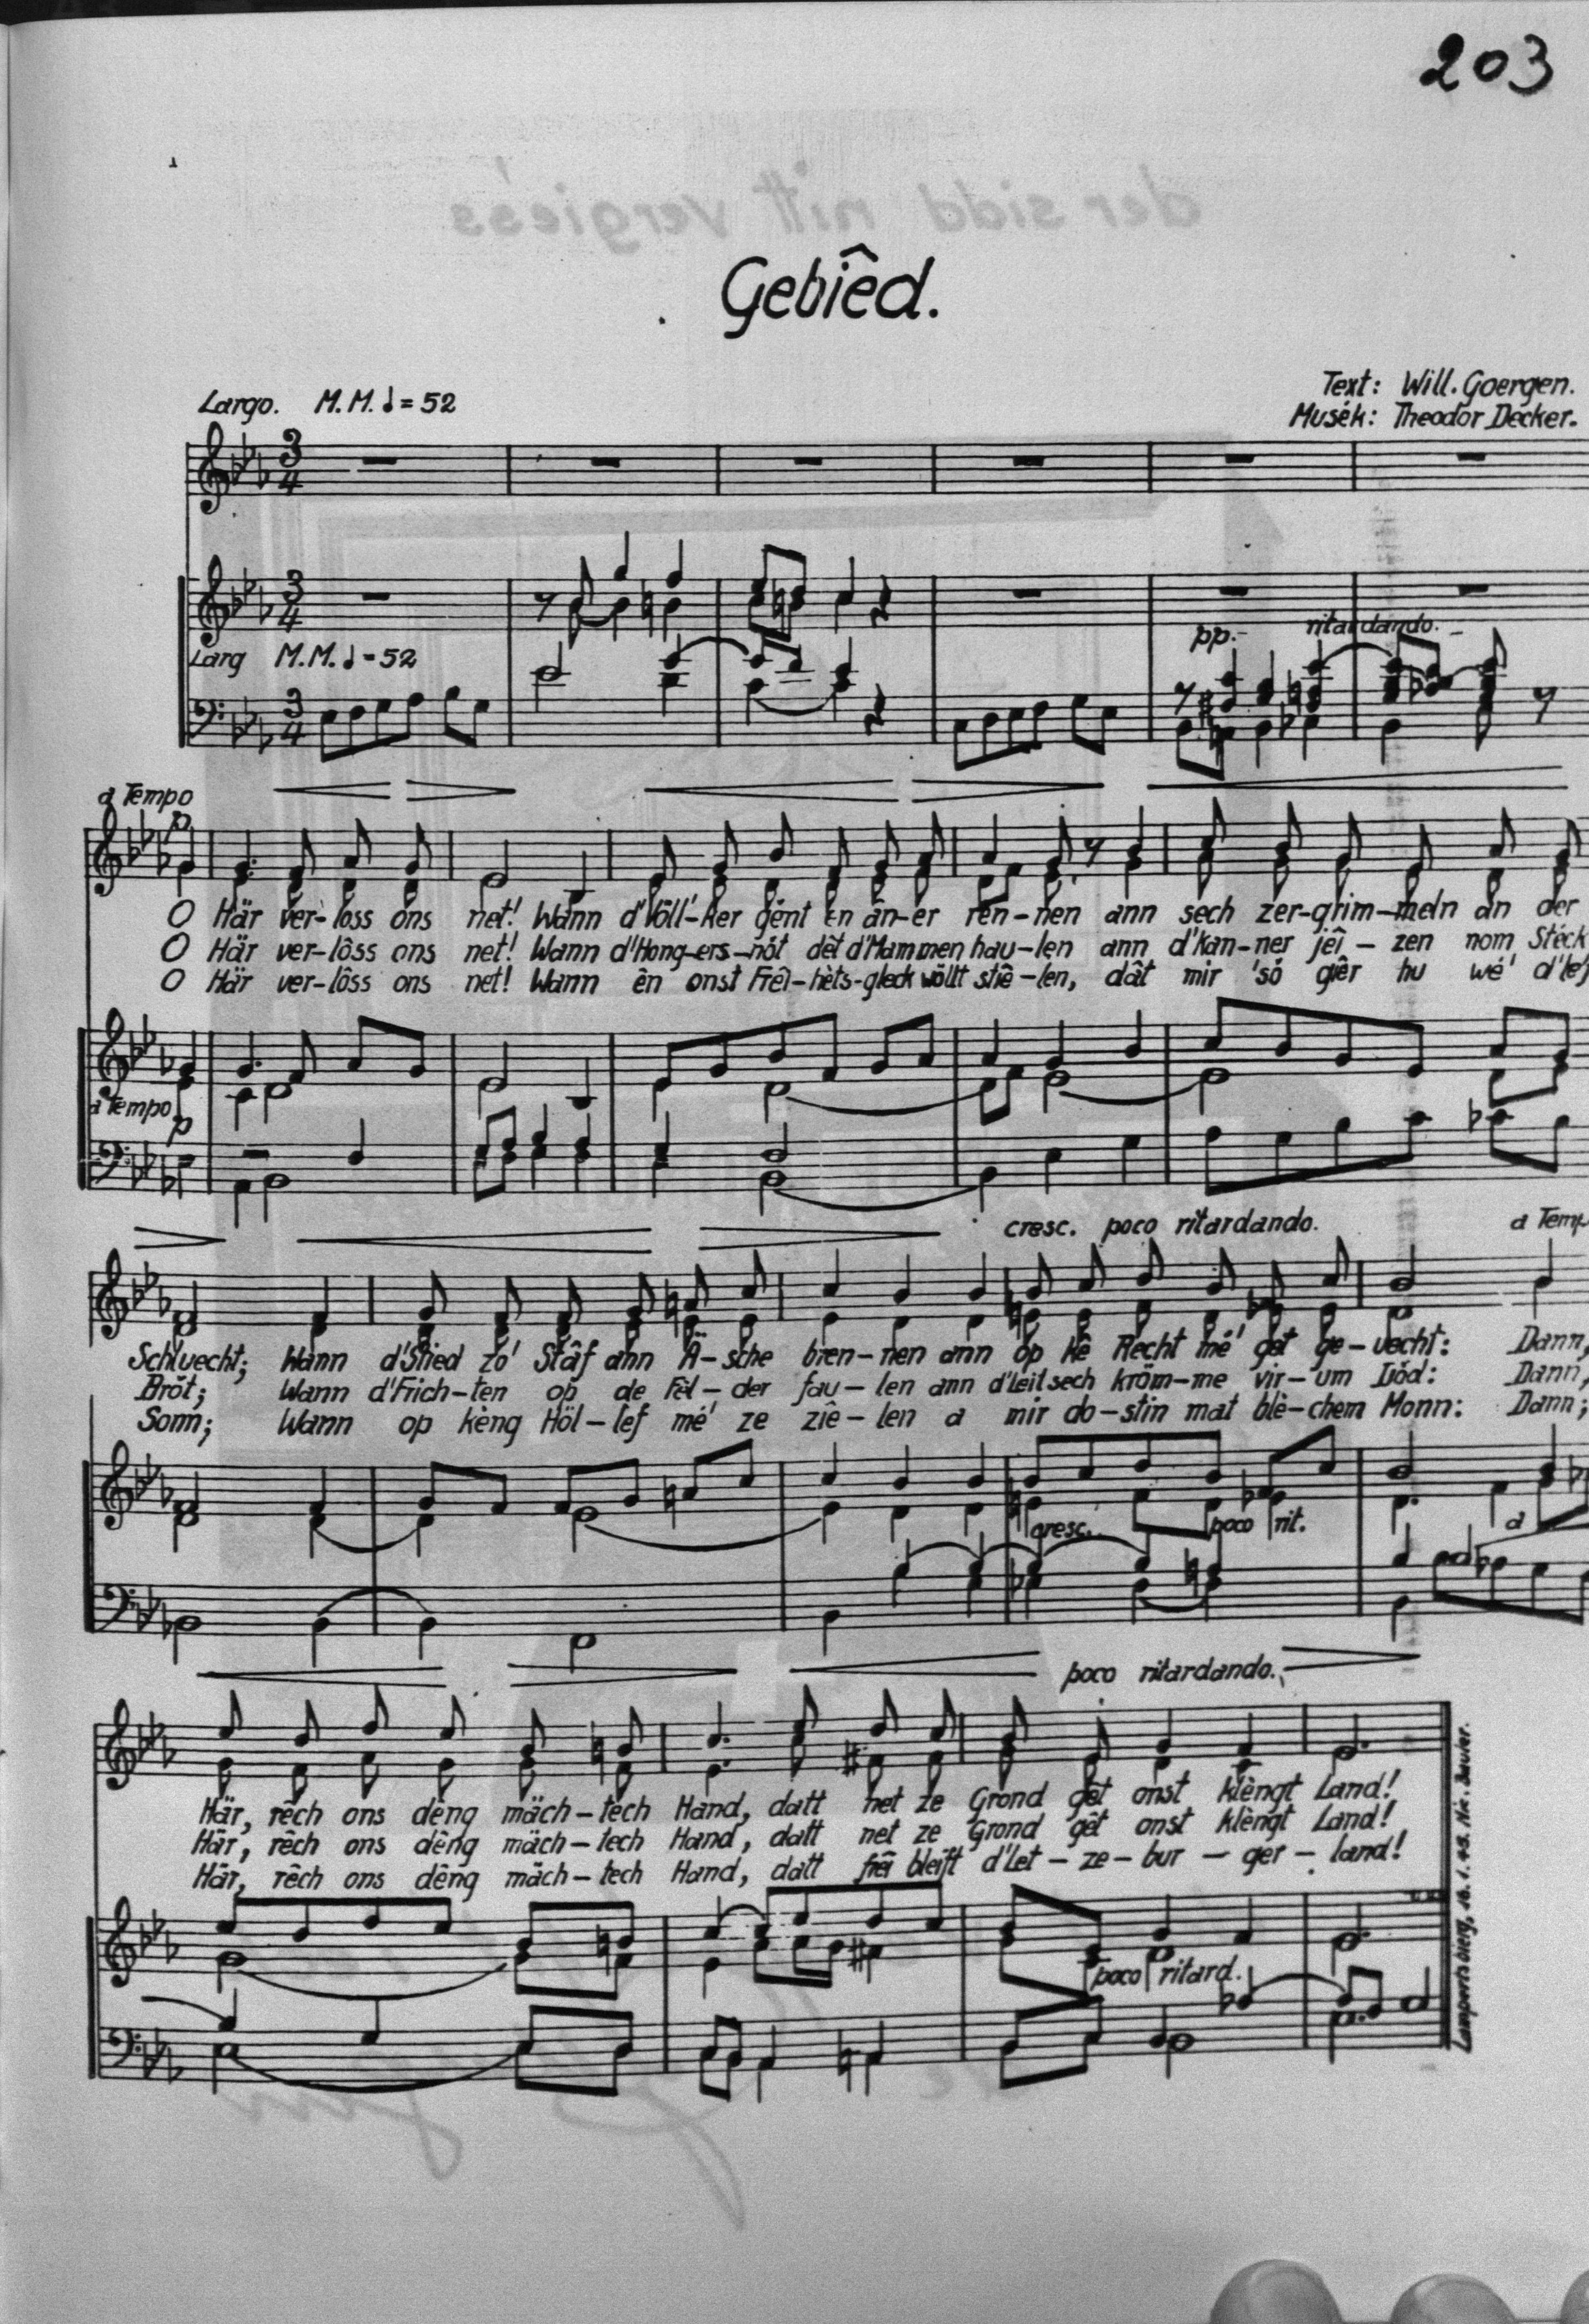 203
der sidd nitt vergiess
Gebiêd.
Largo. M.M. ♩ = 52
Text: Will. Goergen.
Musék: Theodor Decker.
3/4
3/4
pp.
ritardando.
Larg M.M. ♩ = 52
3/4
a Tempo
p
O Här ver-loss ons net! Wann d'Völl'-ker gént en ân-er ren-nen ann sech zer-grim-meln an der
O Här ver-lôss ons net! Wann d'Hong-ers-nót dêt d'Mammen hau-len ann d'Kan-ner jeî-zen nom Stéck
O Här ver-lôss ons net! Wann ên onst Frêi-hèts-gleck wöllt stiê-len, dât mir 'só giêr hu wé'
a Tempo
p
cresc. poco ritardando.
a Temp
Schluecht; Wann d'Shied zo' Stâf ann Ä-sche bren-nen ann op kê Recht mé' get ge-uecht: Dann,
Brót; Wann d'Frich-ten op de Fél-der fau-len ann d'Leit sech kröm-me vir-um Dód: Dann,
Sonn; Wann op kèng Höl-lef mé' ze ziê-len a mir do-stin mat blè-chem Monn: Dann;
cresc. poco rit.
a
poco ritardando.
Här, rêch ons dèng mäch-tech Hand, datt net ze Grond gêt onst klèngt Land!
Här, rêch ons dêng mäch-tech Hand, datt net ze Grond gêt onst klèngt Land!
Här, rêch ons dêng mäch-tech Hand, datt frêi bleift d'Let-ze-bur-ger-land!
poco ritard.